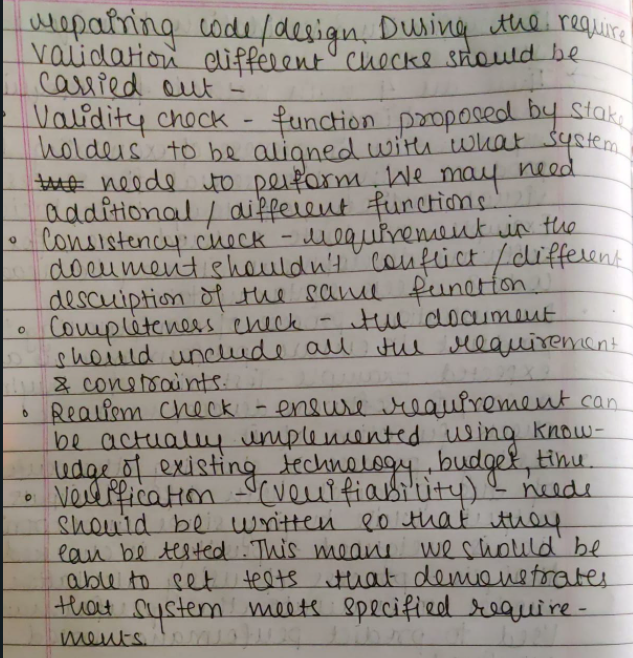 repairing code/design. During the require
validation different checks should be
carried out -
Validity check - function proposed by stake
holders to be aligned with what system
the needs to perform. We may need
additional / different functions
Consistency check - requirement in the
document shouldn't conflict / different
description of the same function.
Completeness check - the document
should include all the requirement
& constraints.
Realism check - ensure requirement can
be actually implemented using know-
ledge of existing technology, budget, time.
Verification - (verifiability) - needs
should be written so that they
can be tested. This means we should be
able to set tests that demonstrates
that system meets specified require-
ments.